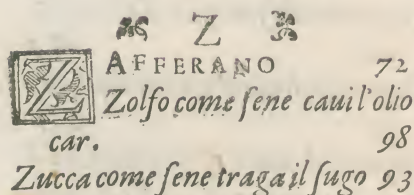 Z
ZAFFERANO 72
Zolfo come ſene cavi l'olio
car. 98
Zucca come ſene traga il ſugo 93